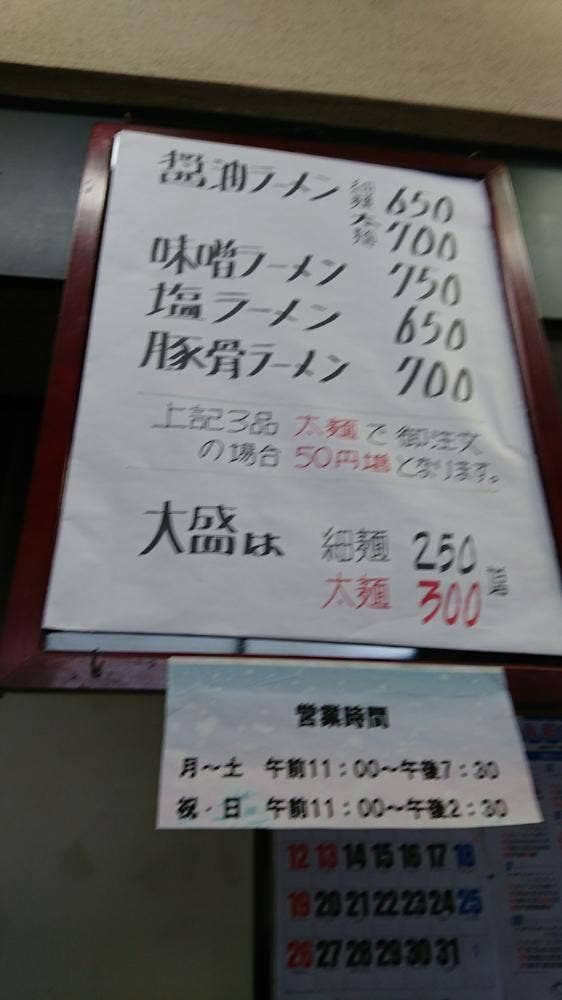 醤油ラーメン 細麺 650
太麺 700
味噌ラーメン 750
塩ラーメン 650
豚骨ラーメン 700
上記3品 太麺で御注文
の場合 50円増となります。
大盛は 細麺 250
太麺 300 増
営業時間
月～土 午前11：00～午後7：30
祝・日 午前11：00～午後2：30
12 13 14 15 16 17 18
19 20 21 22 23 24 25
26 27 28 29 30 31